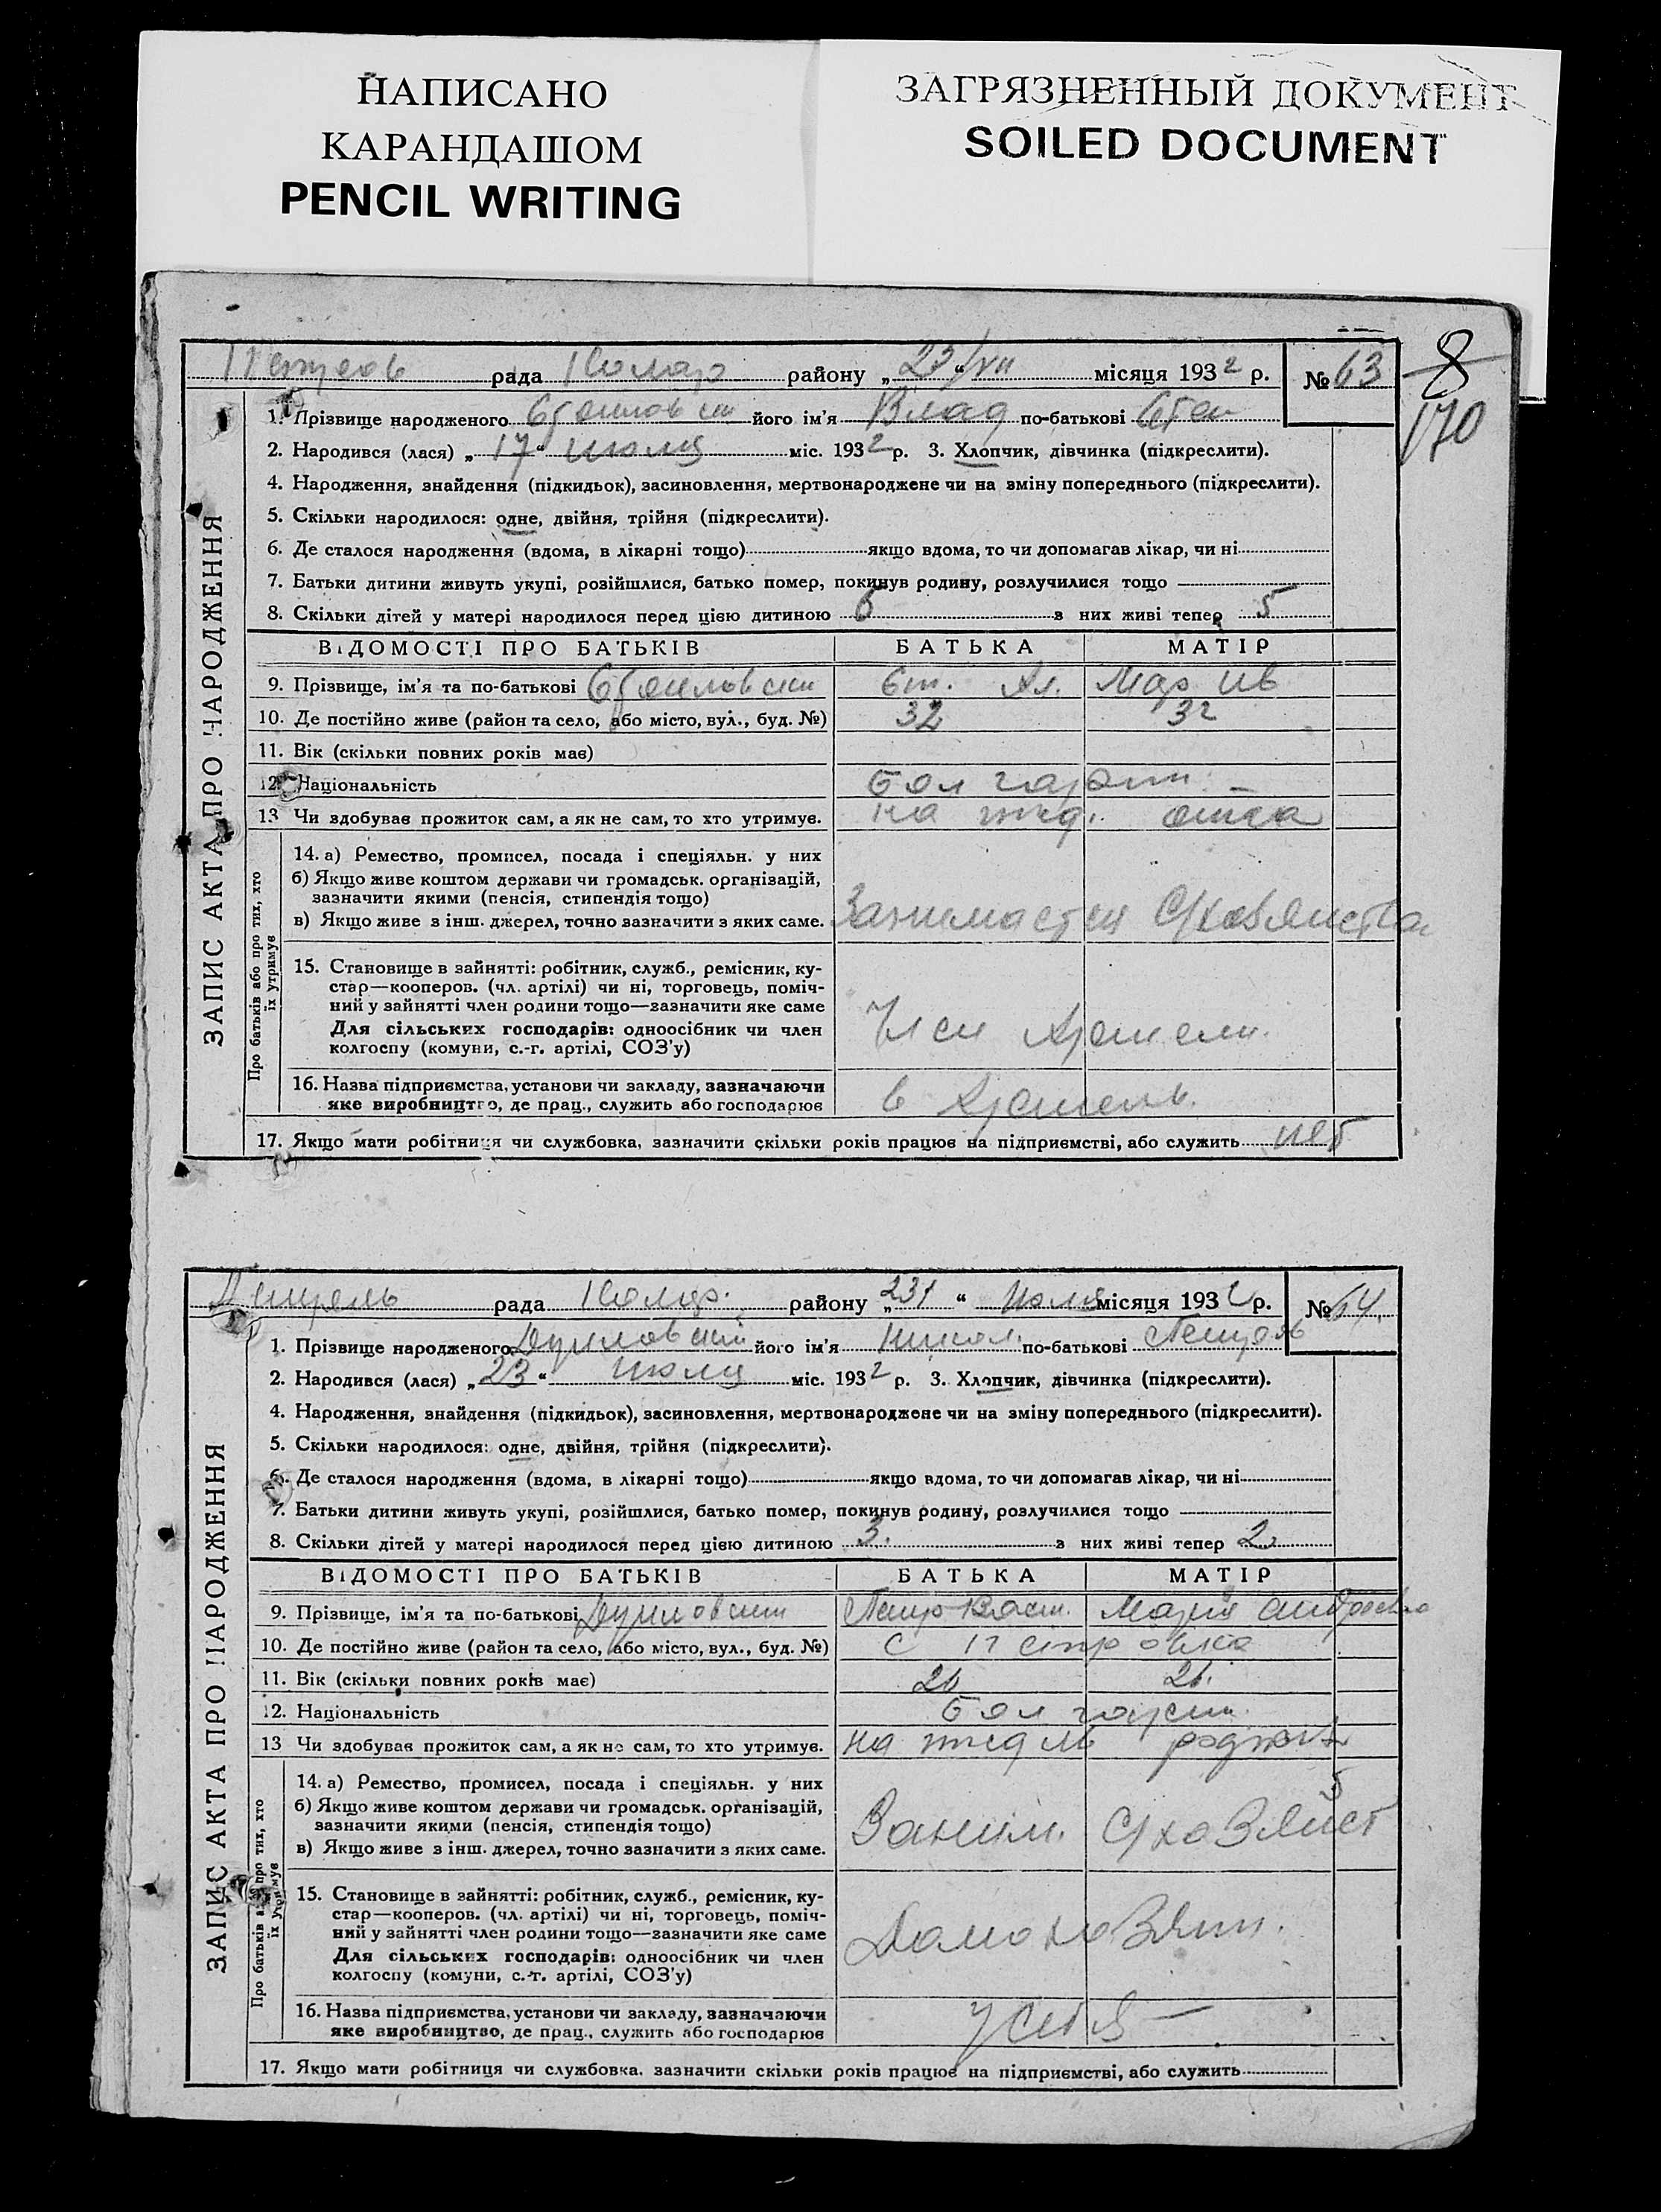 НАПИСАНО
КАРАНДАШОМ
PENCIL WRITING
ЗАГРЯЗНЕННЫЙ ДОКУМЕНТ
SOILED DOCUMENT
8
170
рада района „23/VII“ місяця 1932 р. № 63
1. Прізвище народженого його ім'я Влад по-батькові Степ
2. Народився (лася) „17“ июля міс. 1932 р. 3. Хлопчик, дівчинка (підкреслити).
4. Народження, знайдення (підкидьок), засиновлення, мертвонароджене чи на зміну попереднього (підкреслити).
5. Скільки народилося: одне, двійня, трійня (підкреслити).
6. Де сталося народження (вдома, в лікарні тощо) якщо вдома, то чи допомагав лікар, чи ні
7. Батьки дитини живуть укупі, розійшлися, батько помер, покинув родину, розлучилися тощо
8. Скільки дітей у матері народилося перед цією дитиною 6 з них живі тепер 5
ВІДОМОСТІ ПРО БАТЬКІВ БАТЬКА МАТІР
9. Прізвище, ім'я та по-батькові Мар Ив
10. Де постійно живе (район та село, або місто, вул., буд. №) 32 32
11. Вік (скільки повних років має)
12. Національність Болгары
13 Чи здобував прожиток сам, а як не сам, то хто утримув. на ижд. отца
14. а) Ремество, промисел, посада і спеціяльн. у них
б) Якщо живе коштом держави чи громадськ. організацій,
зазначити якими (пенсія, стипендія тощо)
в) Якщо живе з інш. джерел, точно зазначити з яких саме. Занимается С/хозяйства
15. Становище в зайнятті: робітник, служб., ремісник, ку-
стар—кооперов. (чл. артілі) чи ні, торговець, поміч-
ний у зайнятті член родини тощо—зазначити яке саме
Для сільських господарів: одноосібник чи член
колгоспу (комуни, с.-г. артілі, СОЗ'у) Член
16. Назва підприємства, установи чи закладу, зазначаючи
яке виробництво, де прац., служить або господарює в
17. Якщо мати робітниця чи службовка, зазначити скільки років працює на підприємстві, або служить нет
ЗАПИС АКТА ПРО НАРОДЖЕННЯ
Про батьків або про тих, хто
їх утримує
рада району „23“ июля місяця 1932 р. № 64
1. Прізвище народженого його ім'я Никол. по-батькові
2. Народився (лася) „23“ июля міс. 1932 р. 3. Хлопчик, дівчинка (підкреслити).
4. Народження, знайдення (підкидьок), засиновлення, мертвонароджене чи на зміну попереднього (підкреслити).
5. Скільки народилося: одне, двійня, трійня (підкреслити).
6. Де сталося народження (вдома, в лікарні тощо) якщо вдома, то чи допомагав лікар, чи ні
7. Батьки дитини живуть укупі, розійшлися, батько помер, покинув родину, розлучилися тощо
8. Скільки дітей у матері народилося перед цією дитиною 3. з них живі тепер 2
ВІДОМОСТІ ПРО БАТЬКІВ БАТЬКА МАТІР
9. Прізвище, ім'я та по-батькові Мария
10. Де постійно живе (район та село, або місто, вул., буд. №) с Петровка
11. Вік (скільки повних років має) 26 26.
12. Національність Болгары
13 Чи здобував прожиток сам, а як не сам, то хто утримув. на
14. а) Ремество, промисел, посада і спеціяльн. у них
б) Якщо живе коштом держави чи громадськ. організацій,
зазначити якими (пенсія, стипендія тощо)
в) Якщо живе з інш. джерел, точно зазначити з яких саме. Заним. С/хозяйст
15. Становище в зайнятті: робітник, служб., ремісник, ку-
стар—кооперов. (чл. артілі) чи ні, торговець, поміч-
ний у зайнятті член родини тощо—зазначити яке саме
Для сільських господарів: одноосібник чи член
колгоспу (комуни, с.-г. артілі, СОЗ'у) Домохозяин.
16. Назва підприємства, установи чи закладу, зазначаючи
яке виробництво, де прац., служить або господарює у себя
17. Якщо мати робітниця чи службовка, зазначити скільки років працює на підприємстві, або служить
ЗАПИС АКТА ПРО НАРОДЖЕННЯ
Про батьків або про тих, хто
їх утримує